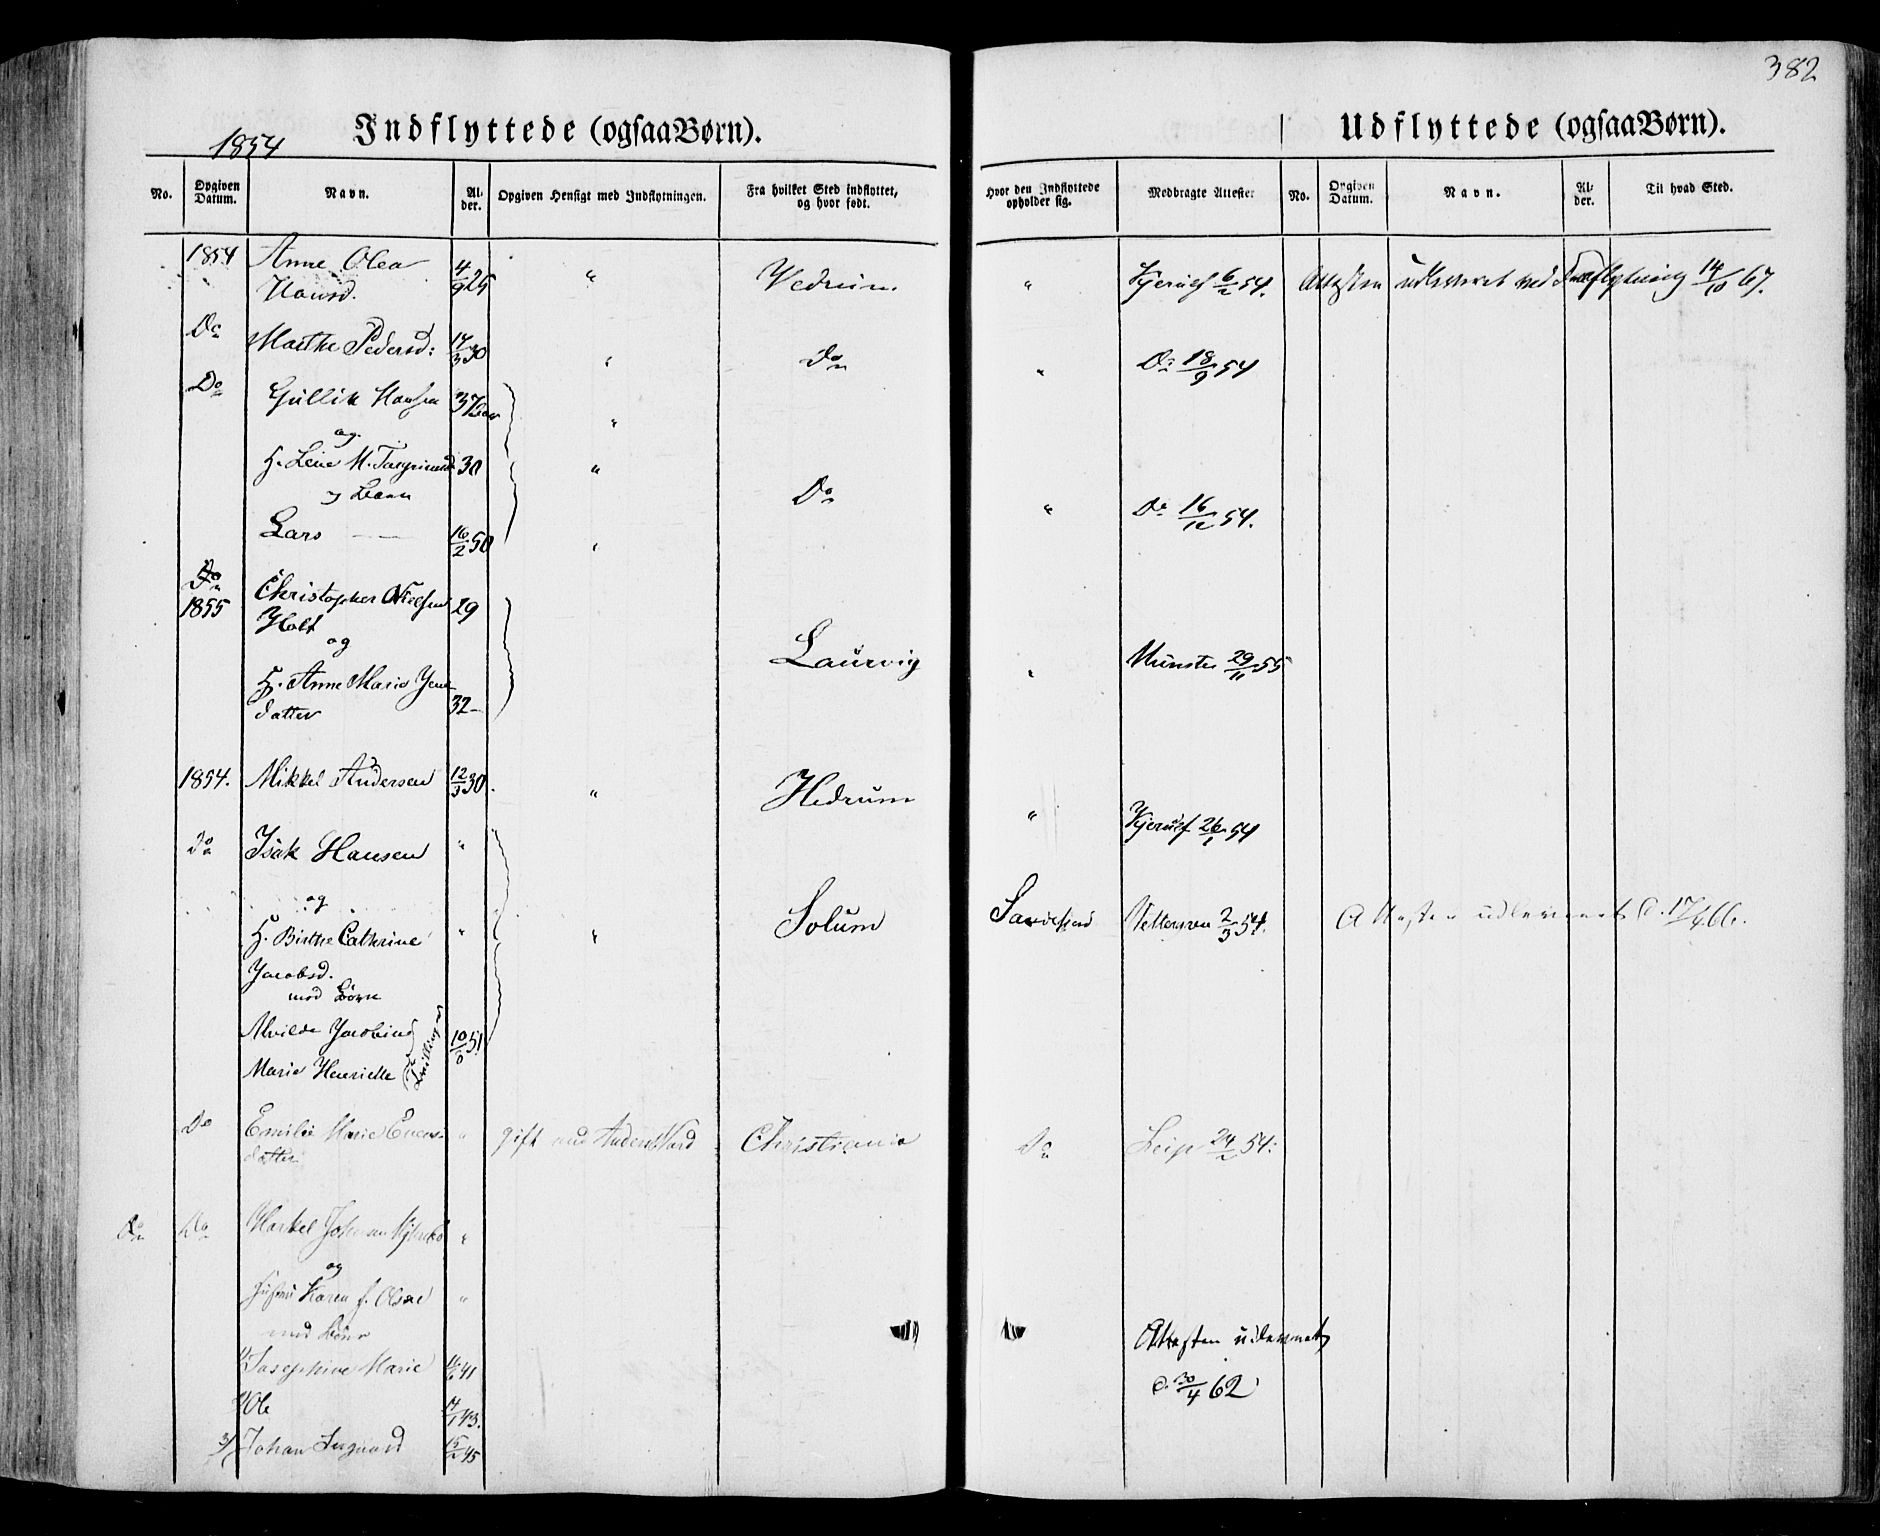 382
Indflyttede (ogsaa Børn).
Udflyttede (ogsaa Børn).
1854
No.
Opgiven Datum.
Navn.
Al-der.
Opgiven Hensigt med Indflytningen.
Fra hvilket Sted indflyttet, og hvor født.
Hvor den Indflyttede opholder sig.
Medbragte Attester
No.
Opgiven Datum.
Navn.
Al-der.
Til hvad Sted.
1854 Anne Olea 4/9 25 " Hedrum " Kjerulf 6/2 54. Attesten udleveret ved 14/10 67.
Do Marthe Pedersd: 30 " Do " Do 18/9 54
Do Gullik Hansen 37 "
og
H. Lene M. 30 " Do " Do 16/12 54.
og Barn
Lars — 16/2 50 "
Do
1855 Christopher Nielsen 29
Holt
og Laurvig " Munster 29/11 55
H. Anne Marie
datter 32–
1854. Mikkel Andersen 12/3 30. " Hedrum " Kjerulf 26/1 54
Do Isak Hansen "
og Solum Sandefjord 2/3 54. Attesten udleveret d. 17/4 66.
H. Birthe Cathrine " "
Jacobsd.
med Børn
Alvilde Jacobine 10/10 51
Marie Henriette Tvillinger
Do Emilie Marie " gift med Christiania Do 24/2 54.
datter
Do Do "
og
Hustru Karen f. Olsen "
med Børn
Attesten udleveret
1) Josephine Marie 41
d. 30/4 62
2) Ole 43.
3) Johan 45